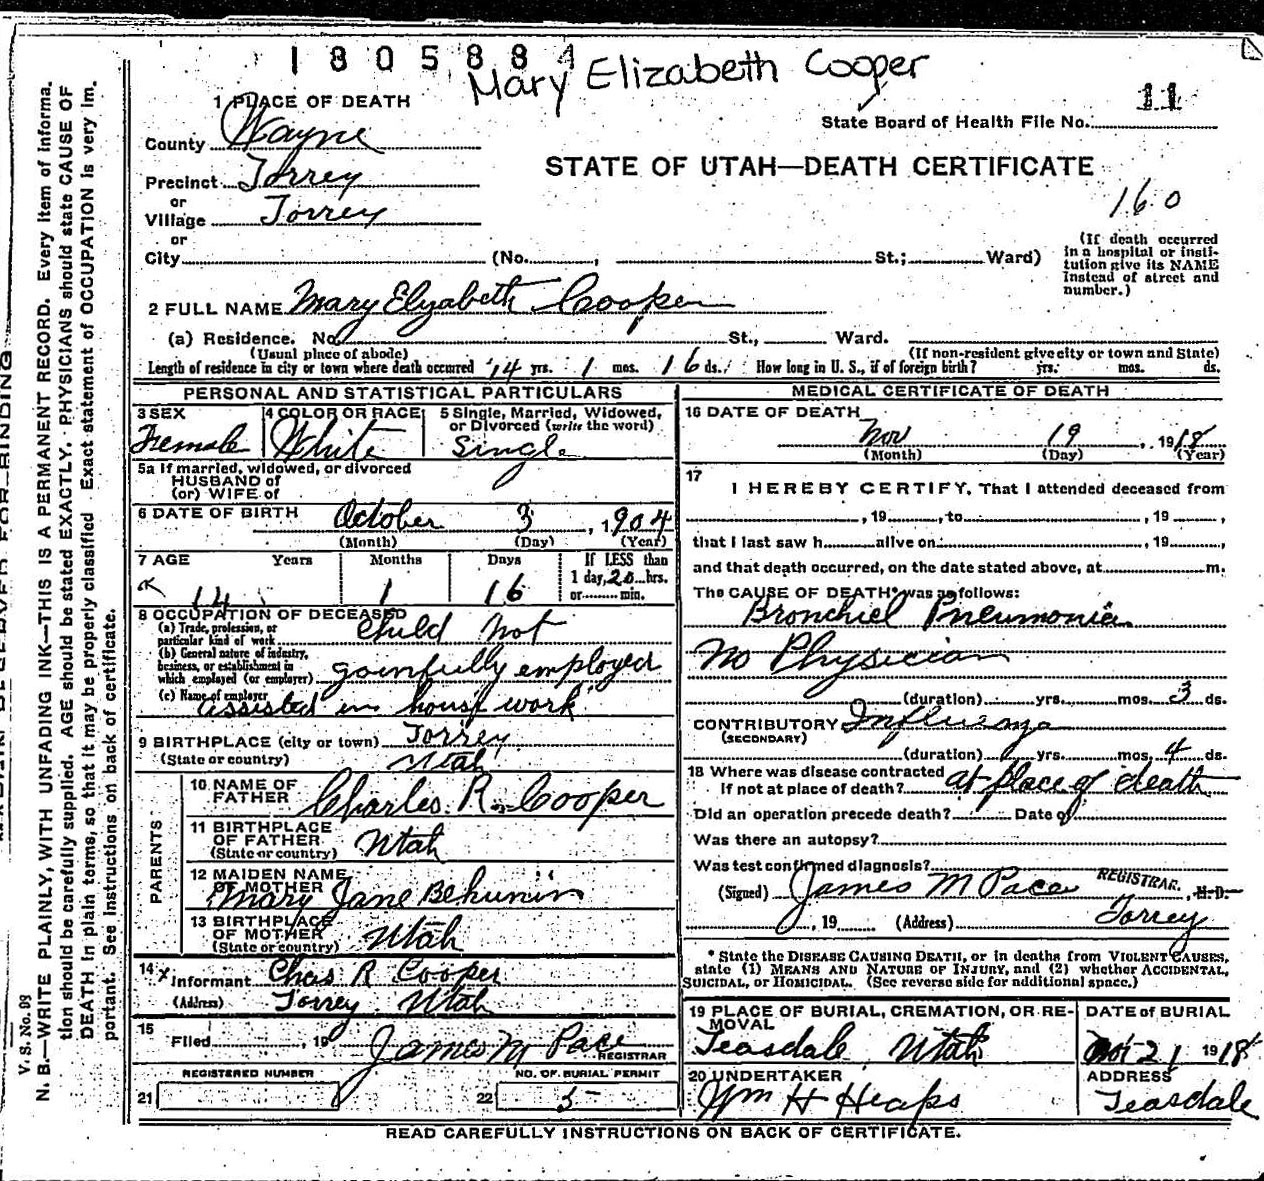 1805884
Mary Elizabeth Cooper
11
1 PLACE OF DEATH
State Board of Health File No.
County Wayne
STATE OF UTAH—DEATH CERTIFICATE
Precinct Torrey
160
or
Village Torrey
or
City (No. , St.; Ward)
(If death occurred
in a hospital or insti-
tution give its NAME
instead of street and
number.)
2 FULL NAME Mary Elyzabeth Cooper
(a) Residence. No. St., Ward.
(Usual place of abode) (If non-resident give city or town and State)
Length of residence in city or town where death occurred 14 yrs. 1 mos. 16 ds. How long in U. S., if of foreign birth? yrs. mos. ds.
PERSONAL AND STATISTICAL PARTICULARS
3 SEX
Female
4 COLOR OR RACE
White
5 Single, Married, Widowed,
or Divorced (write the word)
Single
5a If married, widowed, or divorced
HUSBAND of
(or) WIFE of
6 DATE OF BIRTH October 3, 1904
(Month) (Day) (Year)
7 AGE Years Months Days If LESS than
1 day, 20 hrs.
or min.
14 1 16
8 OCCUPATION OF DECEASED
(a) Trade, profession, or
particular kind of work Child not
(b) General nature of industry,
business, or establishment in
which employed (or employer) gainfully employed
(c) Name of employer
assisted in house work
9 BIRTHPLACE (city or town) Torrey
(State or country) Utah
PARENTS
10 NAME OF
FATHER Charles R. Cooper
11 BIRTHPLACE
OF FATHER Utah
(State or country)
12 MAIDEN NAME
OF MOTHER
Mary Jane Behunin
13 BIRTHPLACE
OF MOTHER Utah
(State or country)
14 x Informant Chas R Cooper
(Address) Torrey Utah
15
Filed , 19 James M Pace
REGISTRAR
REGISTERED NUMBER
21
NO. OF BURIAL PERMIT
22 5-
MEDICAL CERTIFICATE OF DEATH
16 DATE OF DEATH
Nov 19, 1918
(Month) (Day) (Year)
17
I HEREBY CERTIFY, That I attended deceased from
, 19 , to , 19 ,
that I last saw h alive on , 19 ,
and that death occurred, on the date stated above, at m.
The CAUSE OF DEATH* was as follows:
Bronchiel Pneumonia
No Physician
(duration) yrs. mos. 3 ds.
CONTRIBUTORY Influenza
(SECONDARY)
(duration) yrs. mos. 4 ds.
18 Where was disease contracted
If not at place of death? at place of death
Did an operation precede death? Date of
Was there an autopsy?
Was test confirmed diagnosis?
(Signed) James M Pace REGISTRAR, M. D.
, 19 (Address) Torrey
* State the DISEASE CAUSING DEATH, or in deaths from VIOLENT CAUSES,
state (1) MEANS AND NATURE OF INJURY, and (2) whether ACCIDENTAL,
SUICIDAL, or HOMICIDAL. (See reverse side for additional space.)
19 PLACE OF BURIAL, CREMATION, OR RE-
MOVAL
Teasdale Utah
DATE of BURIAL
21 1918
20 UNDERTAKER
Wm H Heaps
ADDRESS
Teasdale
READ CAREFULLY INSTRUCTIONS ON BACK OF CERTIFICATE.
V. S. No. 93
N. B.—WRITE PLAINLY, WITH UNFADING INK—THIS IS A PERMANENT RECORD. Every item of informa-
tion should be carefully supplied. AGE should be stated EXACTLY. PHYSICIANS should state CAUSE OF
DEATH in plain terms, so that it may be properly classified. Exact statement of OCCUPATION is very im-
portant. See instructions on back of certificate.